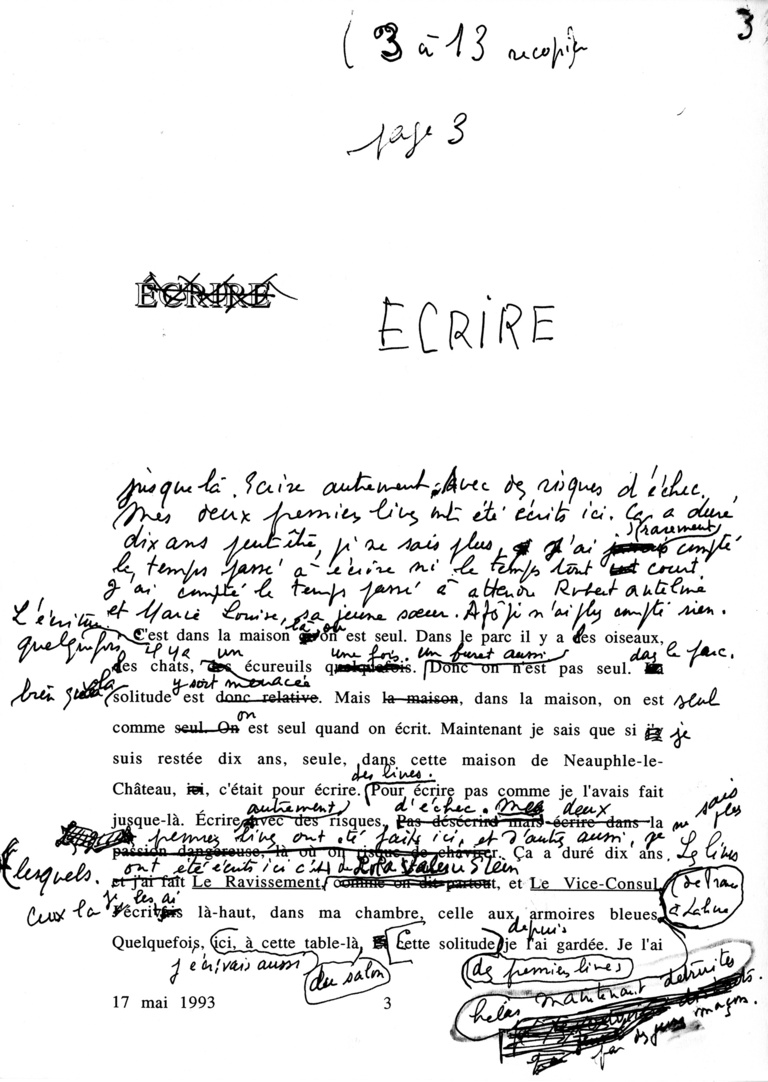 3
( 3 à 13 recopier
page 3
ÉCRIRE
ECRIRE
jusque là. Ecrire autrement. Avec des risques d'échec.
Mes deux premiers livres ont été écrits ici. Ça a duré
dix ans peut-être, je ne sais plus, j'ai rarement compté
le temps passé à écrire ni le temps tout court.
J'ai compté le temps passé à attendre Robert Antelme
et Marie Louise, sa jeune sœur. Après je n'ai plus compté rien.
C'est dans la maison là où on est seul. Dans le parc il y a des oiseaux,
L'écriture
quelquefois
il y a un
une fois. un furet aussi
dans le parc.
des chats, des écureuils quelquefois. Donc on n'est pas seul.
bien que la
y soit menacée
solitude est donc relative. Mais la maison, dans la maison, on est seul
comme seul. On on est seul quand on écrit. Maintenant je sais que si je
suis restée dix ans, seule, dans cette maison de Neauphle-le-
des livres.
Château, ici, c'était pour écrire. Pour écrire pas comme je l'avais fait
autrement
d'échec. Mes deux
jusque-là. Écrire avec des risques, Pas désécrire mais écrire dans la
ne sais plus
premiers livres ont été faits ici, et d'autres aussi, je
passion dangereuse, là où on risque de chavirer. Ça a duré dix ans.
Les livres
lesquels.
ont été écrits ici c'est Lola Valerie Stein
et j'ai fait Le Ravissement, comme on dit partout, et Le Vice-Consul
de France à Lahore
ceux là je les ai
écrits là-haut, dans ma chambre, celle aux armoires bleues,
depuis
Quelquefois, ici, à cette table-là, Cette solitude je l'ai gardée. Je l'ai
j'écrivais aussi
du salon
des premiers livres
hélas maintenant détruites
par des jeunes maçons.
17 mai 1993
3